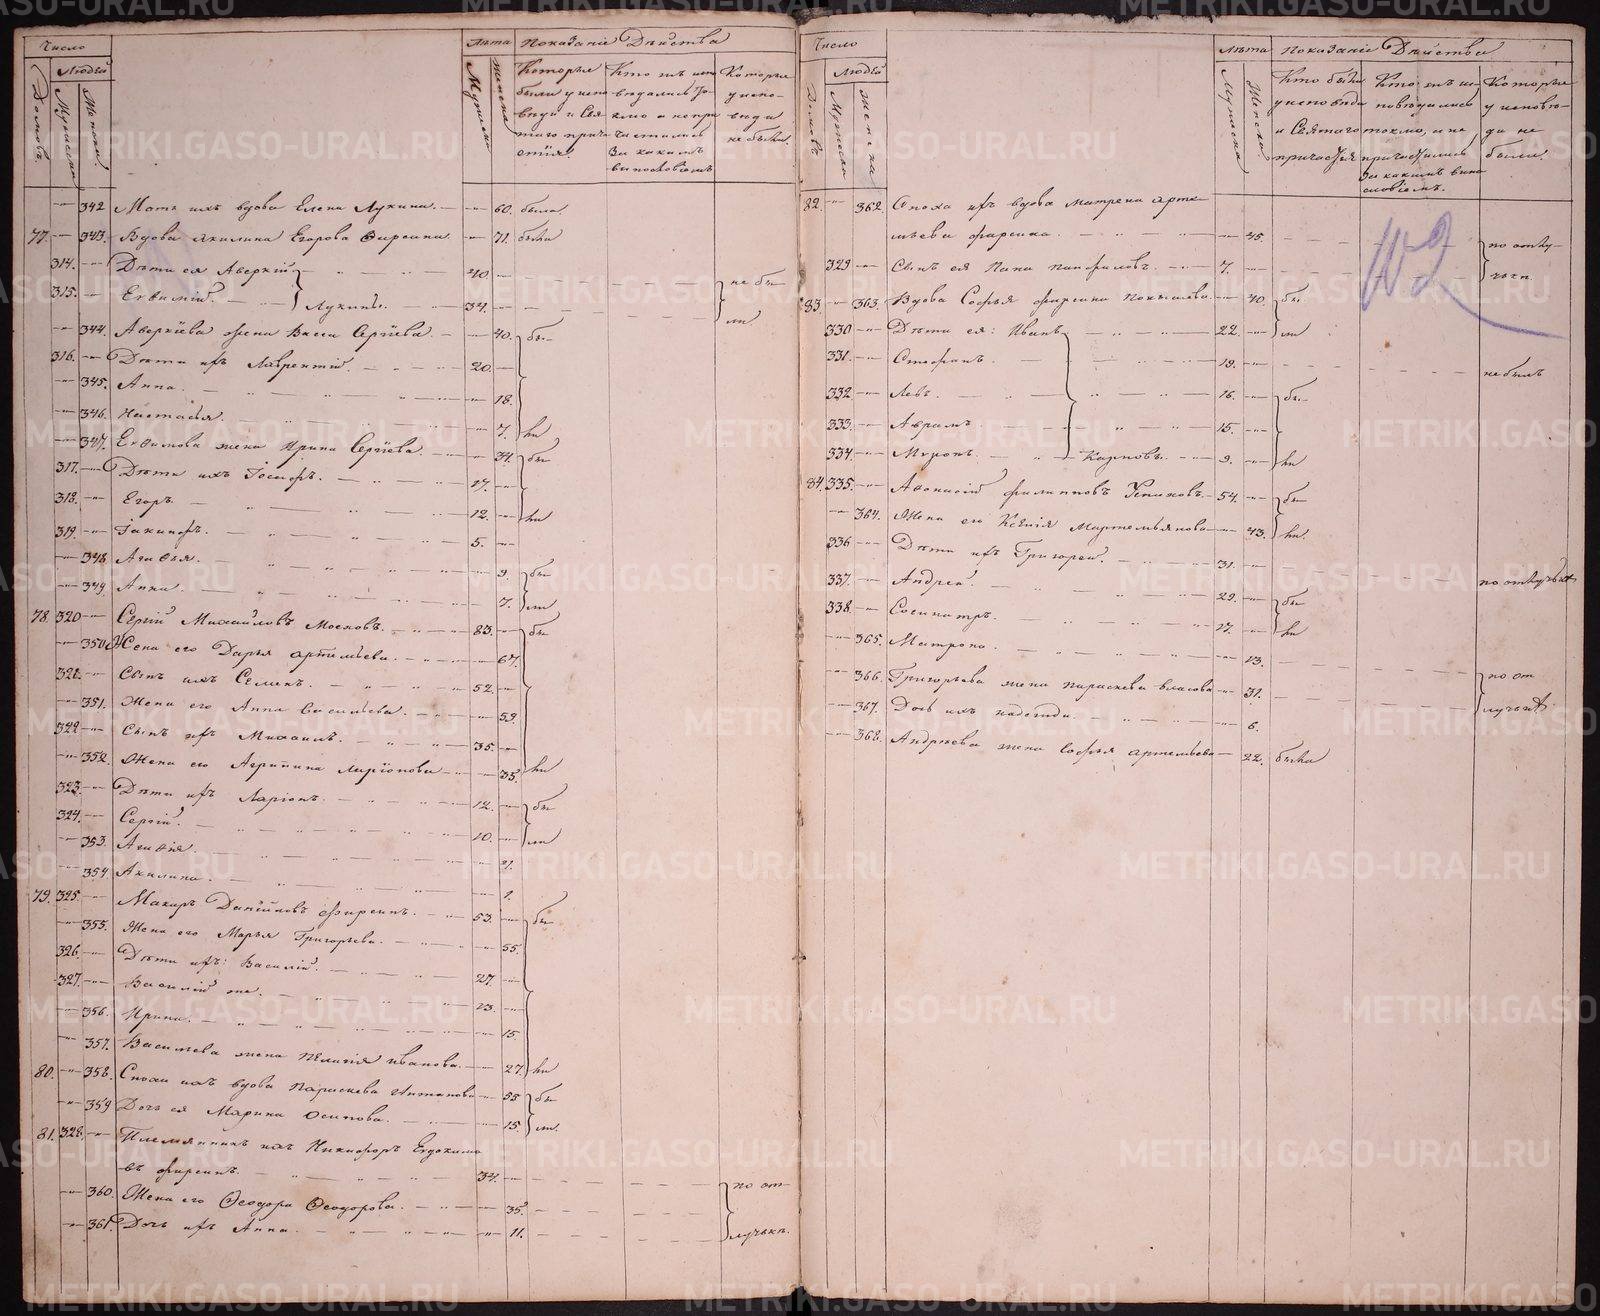 Число
Людей
Домовъ
Мужеска
Женска
Лѣта
Мужеска
Женска
Показанiе Дѣйства
Которые были у испо
вѣди и Свя
таго прича
стiя.
Кто изъ испо
вѣдались То-
кмо а непри
частились
За какимъ
винословiемъ
Которые
у испо-
вѣди
не были.
342 Мать ихъ вдова Елена Лукина. 60. была.
77. 343. Вдова Акилина Егорова Фирсина 71. была
314. Дѣти ея Аверкiй 40 не бы-
315. Евѳимiй. Лукины. 37. ли.
344. Аверкiева жена Васса Сергiева 40. бы-
316. Дѣти ихъ Лаврентiй. 20.
345. Анна. 18.
346. Настасья. 7. ли
347. Евѳимова жена Ирина Сергiева 34. бы
317. Дѣти ихъ Iосифъ. 17.
318. Егоръ 12. ли
319. Iакинфъ. 5.
348 Агаѳья. 9. бы
349. Анна. 7. ли
78. 320 Сергiй Михайловъ 83. бы
350 Жена его Дарья Артемьева. 67.
321. Сынъ ихъ Семенъ. 52.
351. Жена его Анна Васильева. 59.
322 Сынъ ихъ Михаилъ. 35.
352. Жена его Агрипина Ларiонова 35. ли
323. Дѣти ихъ Ларiонъ. 12. бы
324. Сергiй. 10. ли
353. Агаѳiя.
354. Акилина. 1.
79. 325. Макаръ Данiиловъ Фирсинъ. 53. бы
355. Жена его Марья Григорьева. 55.
326. Дѣти ихъ: Василiй. 27.
327. Василiй же. 23.
356. Ирина. 15.
357. Васильева жена Пелагiя Иванова. 27. ли
80. 358. Сноха ихъ вдова Параскева Антонова 55 бы
359 Дочь ея Марина Осипова. 15. ли.
81. 328. Племянникъ ихъ Никифоръ Евдокимо
въ Фирсинъ. 34. по от-
360. Жена его Ѳеодора Ѳеодорова. 35.
361 Дочь ихъ Анна. 11. лучкѣ.
Число
Людей
Домовъ
Мужеска
Женска
Лѣта
Мужеска
Женска
Показанiе Дѣйства
Кто были
у исповѣди
и Святаго
причастiя
Кто изъ ис-
повѣдались
токмо, и не
причастились
за какимъ вино
словiемъ.
Которые
у исповѣ-
ди не
были.
82. 362. Сноха ихъ вдова Матрена Арте-
мьева Фирсина. 45. по отлу-
329 Сынъ ея Панфиловъ. 7. чкѣ.
83. 363. Вдова Софья Фирсина 40. бы
330 Дѣти ея: Иванъ 22. ли
331. Стефанъ. 19. не былъ
332 Левъ. 16. бы-
333. Аврамъ 15.
334. Миронъ. Карповы. 9. ли
84. 335. Аѳонасiй Филипповъ 54. бы
364. Жена его Ксенiя Мартемьянова 43. ли.
336 Дѣти ихъ Григорей. 31. по отлучкѣ
337. Андрей. 29. бы
338. Сосипатръ. 17. ли
365. Матрона. 13.
366. Григорьева жена Параскева Власова 31. по от
367. Дочь ихъ Надежда 6. лучкѣ.
368. Андреева жена Софья Артемьева 22. была
METRIKI.GASO-URAL.RU